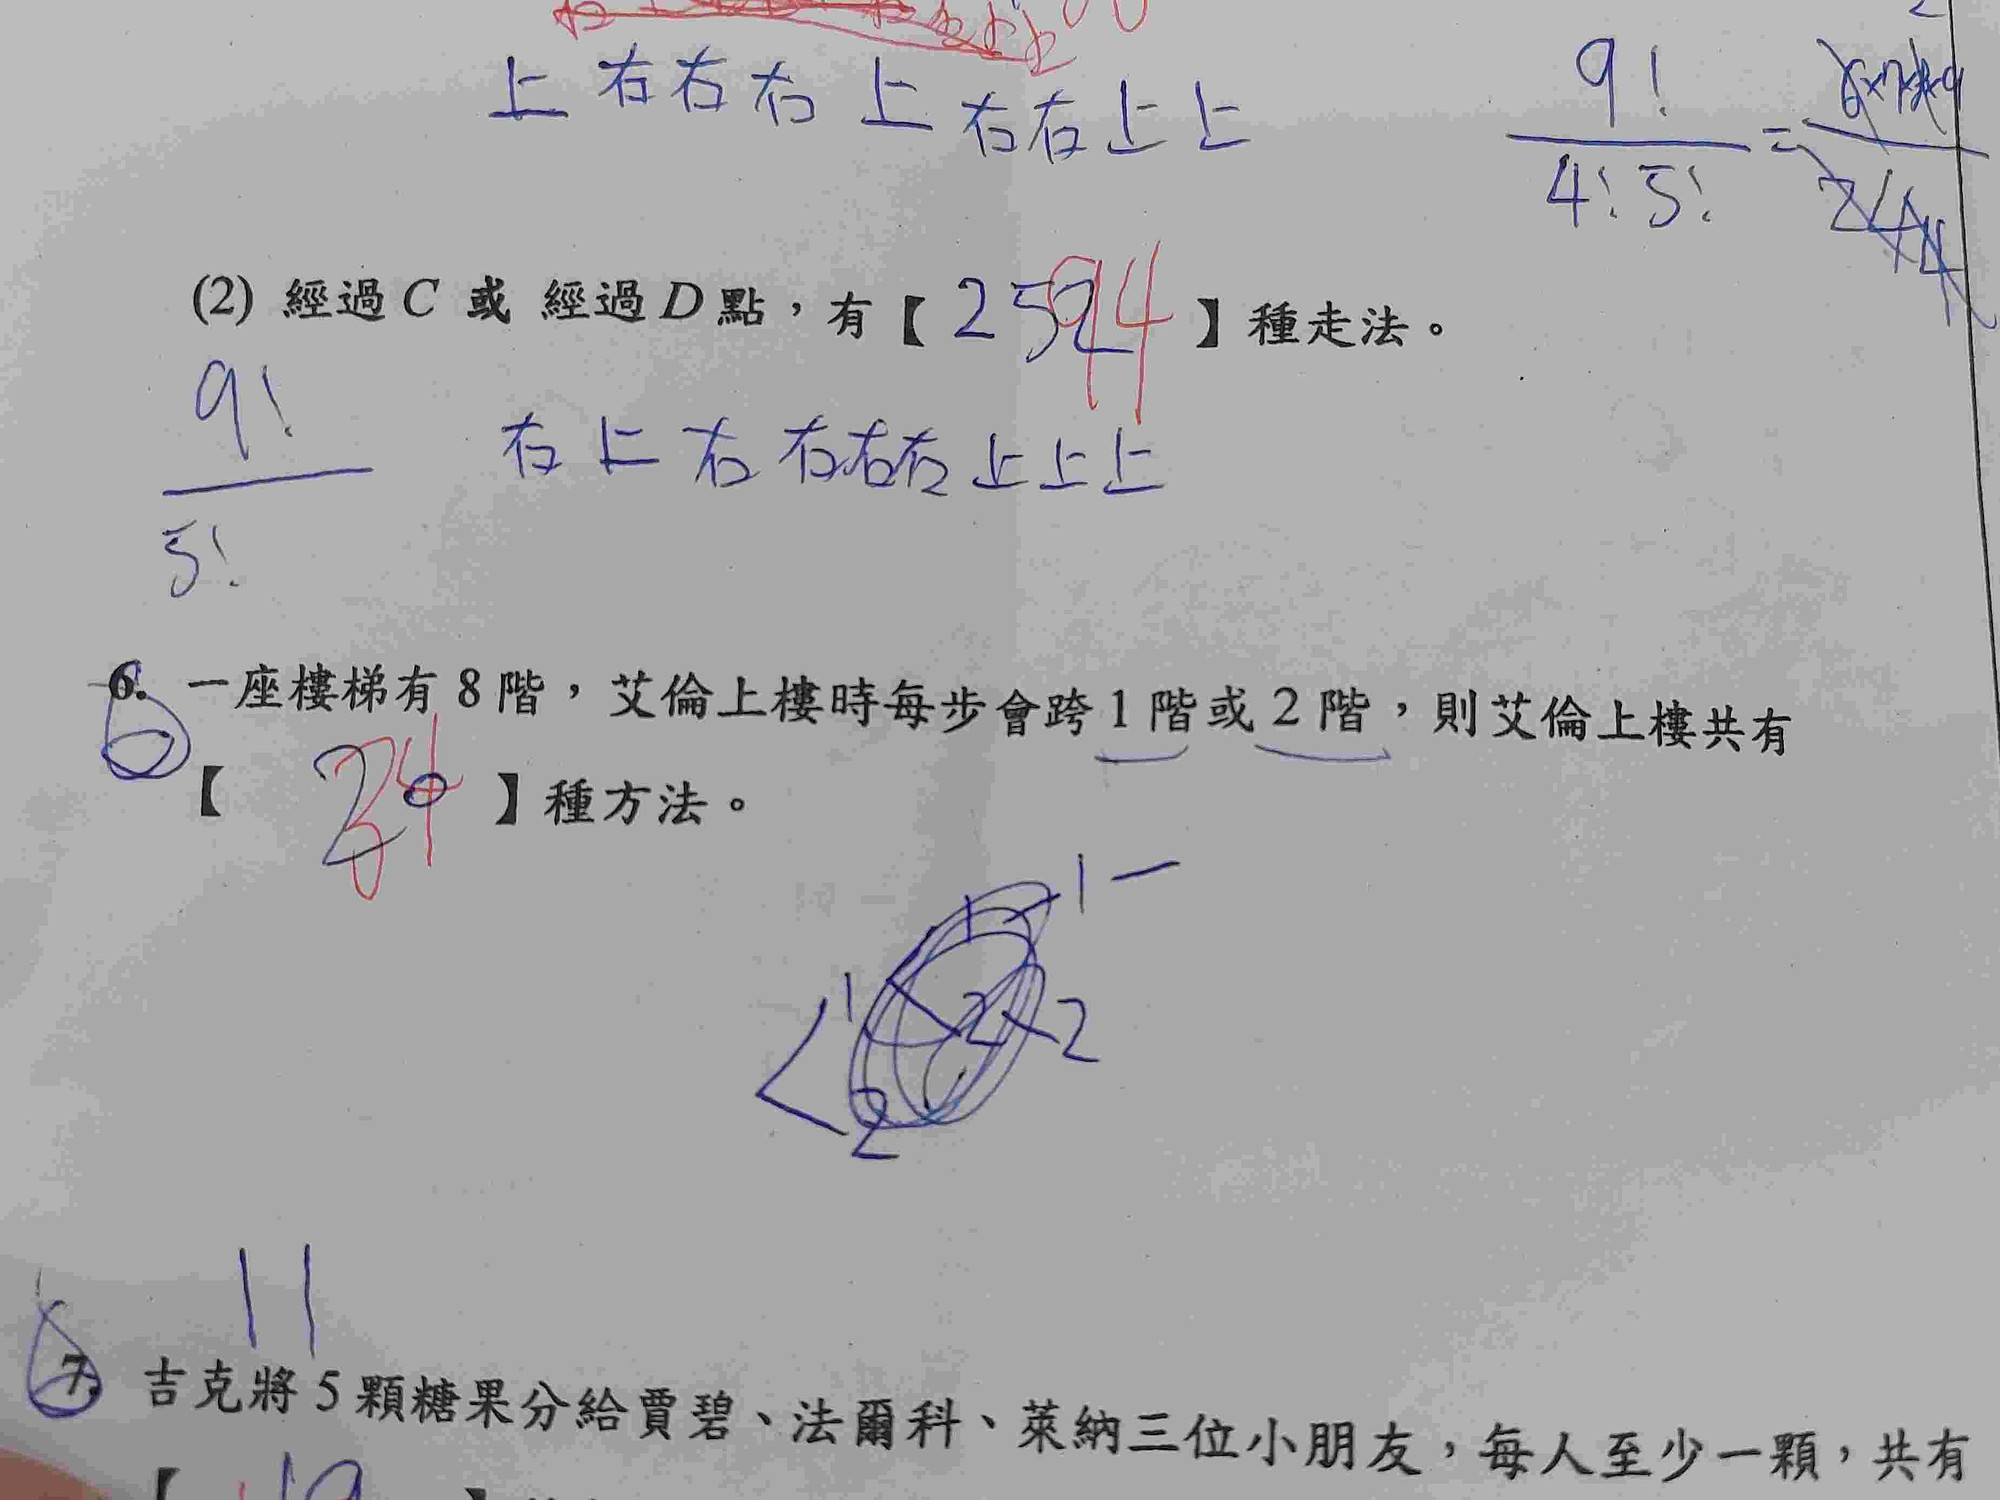 上 右 右 右 上 右 右 上 上
9!
4! 5!
=
(2) 經過 C 或 經過 D 點，有【 2594 】種走法。
9!
5!
右 上 右 右 右 右 上 上 上
6. 一座樓梯有 8 階，艾倫上樓時每步會跨 1 階或 2 階，則艾倫上樓共有
【 34 】種方法。
1
1
2
2
2
11
7. 吉克將 5 顆糖果分給賈碧、法爾科、萊納三位小朋友，每人至少一顆，共有
【